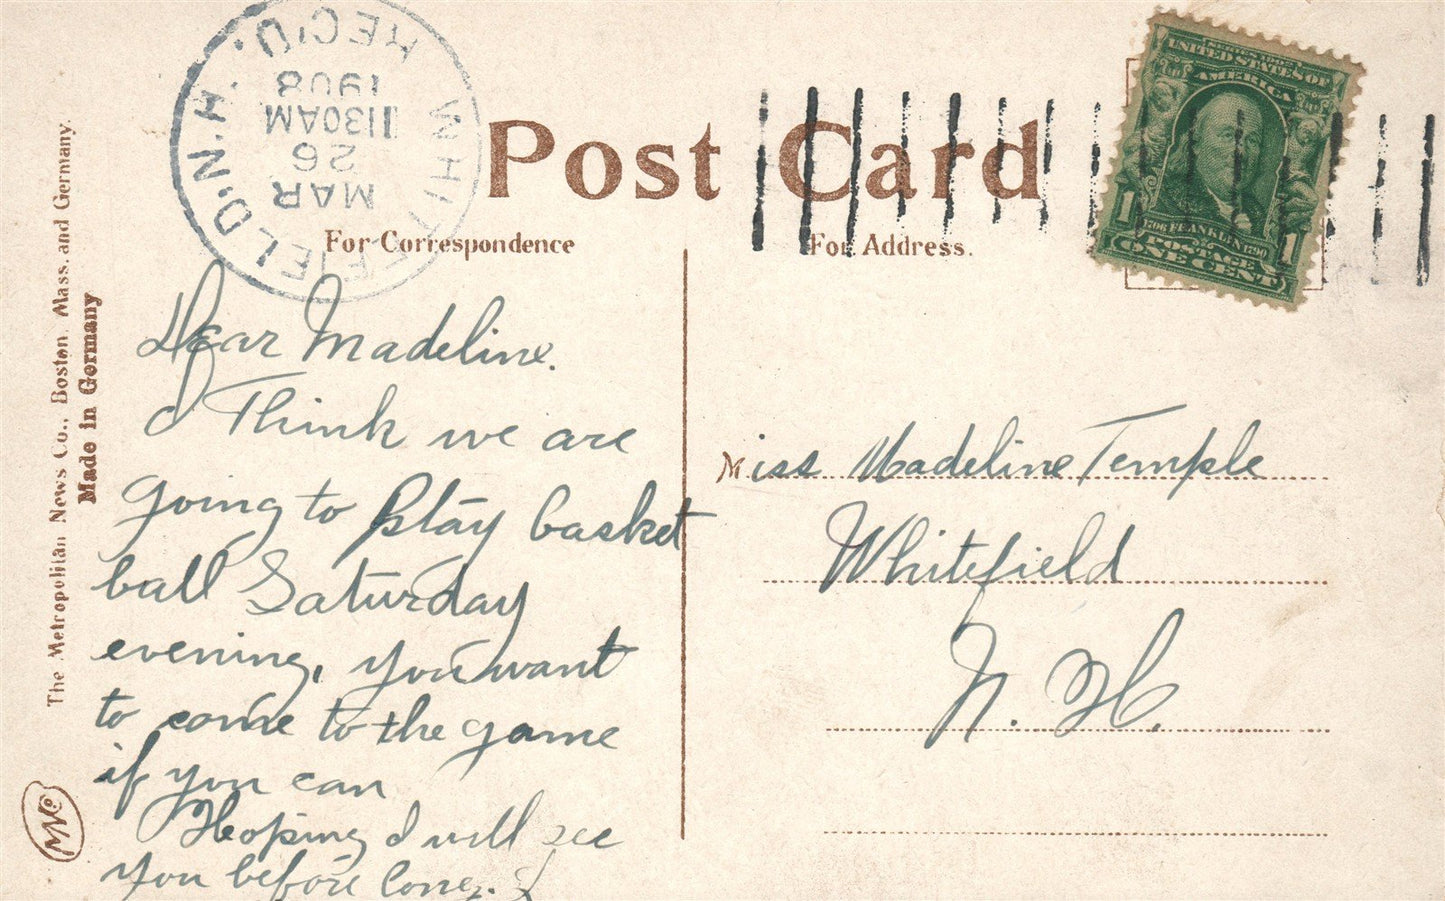 Post Card
For Correspondence
For Address.
WHITEFIELD, N.H. REC'D.
MAR
26
1130AM
1908
SERIES 1902
UNITED STATES OF
AMERICA
1706 FRANKLIN 1790
POSTAGE
ONE CENT
1 1
Dear Madeline.
I Think we are
going to play basket
ball Saturday
evening, you want
to come to the game
if you can
Hoping I will see
you before long.
Miss Madeline Temple
Whitefield
N. H.
The Metropolitan News Co., Boston, Mass. and Germany.
Made in Germany